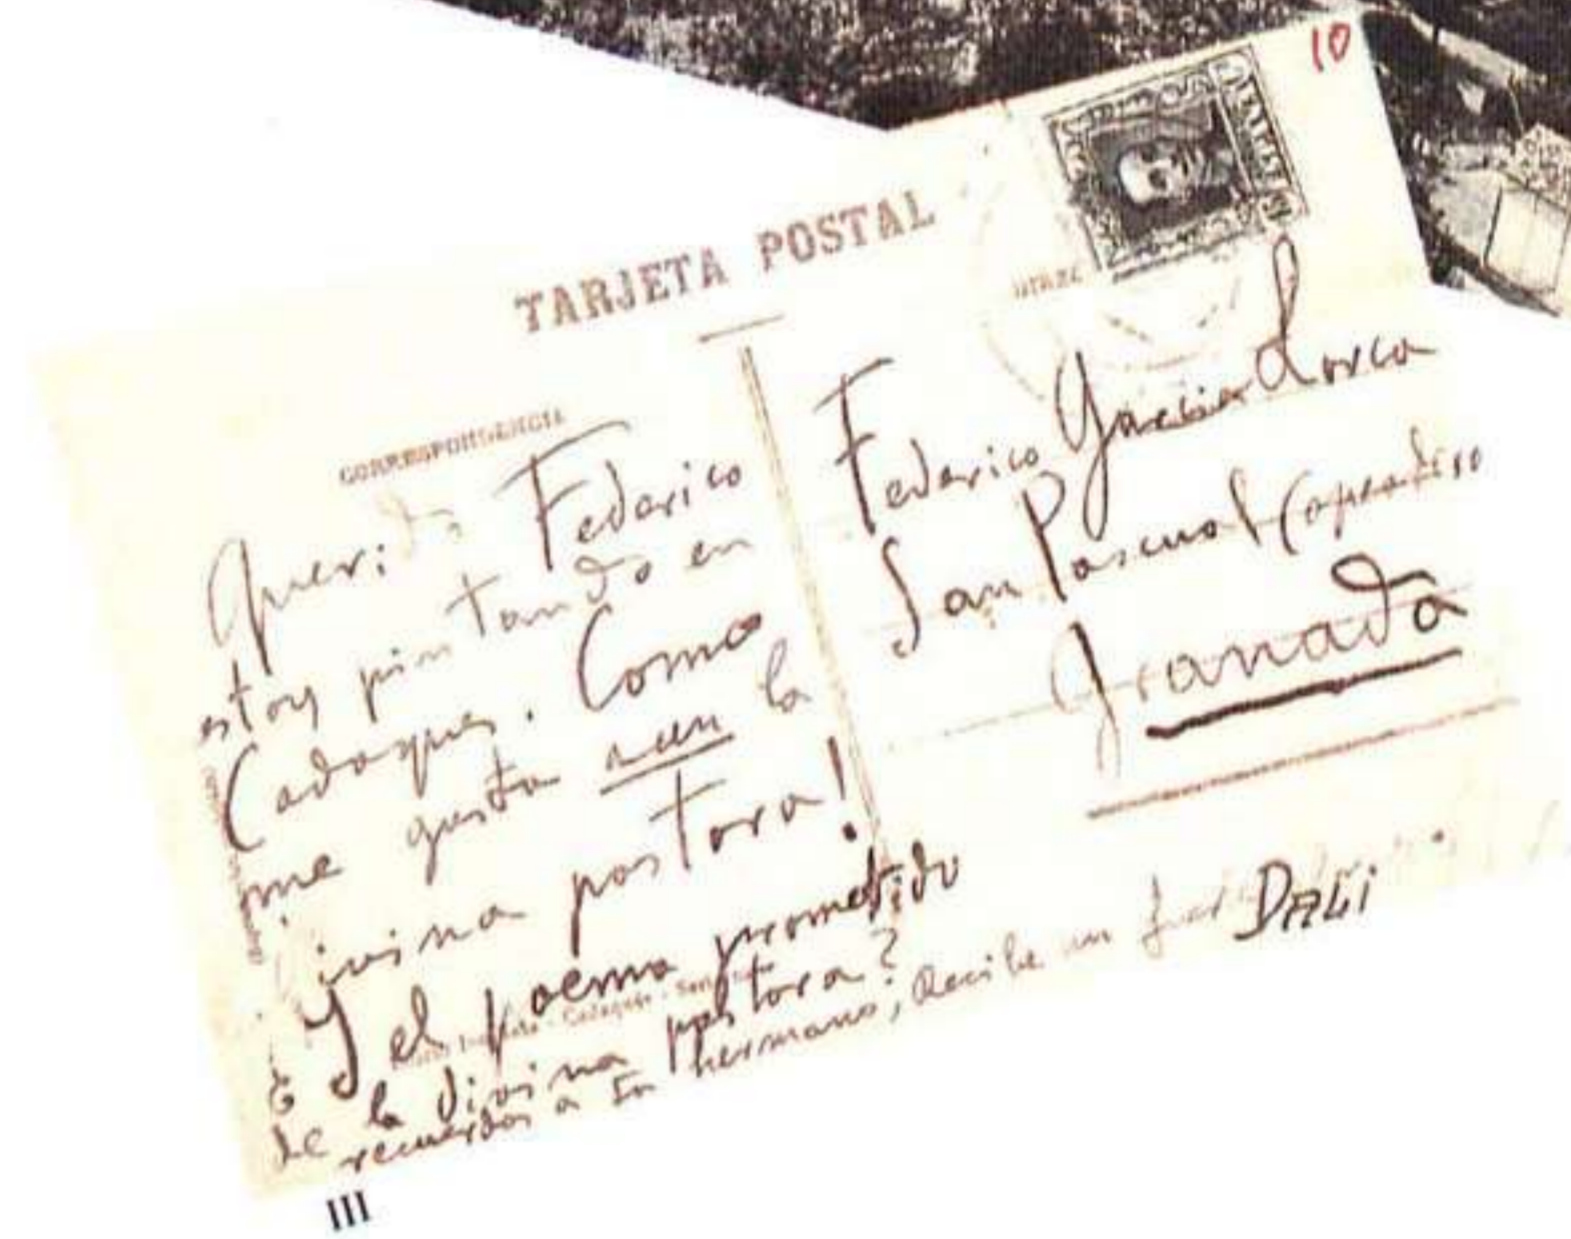 10
TARJETA POSTAL
DIREC
CORRESPONDENCIA
Querido Federico
estoy pintando en
Cadaques. Como
me gusta la
ivina pastora!
Y el poema prometido
de la divina pastora?
recuerdos a tu hermano, Recibe un
DALI
Federico Garcia Lorca
San Pascual (apeadero
Granada
III